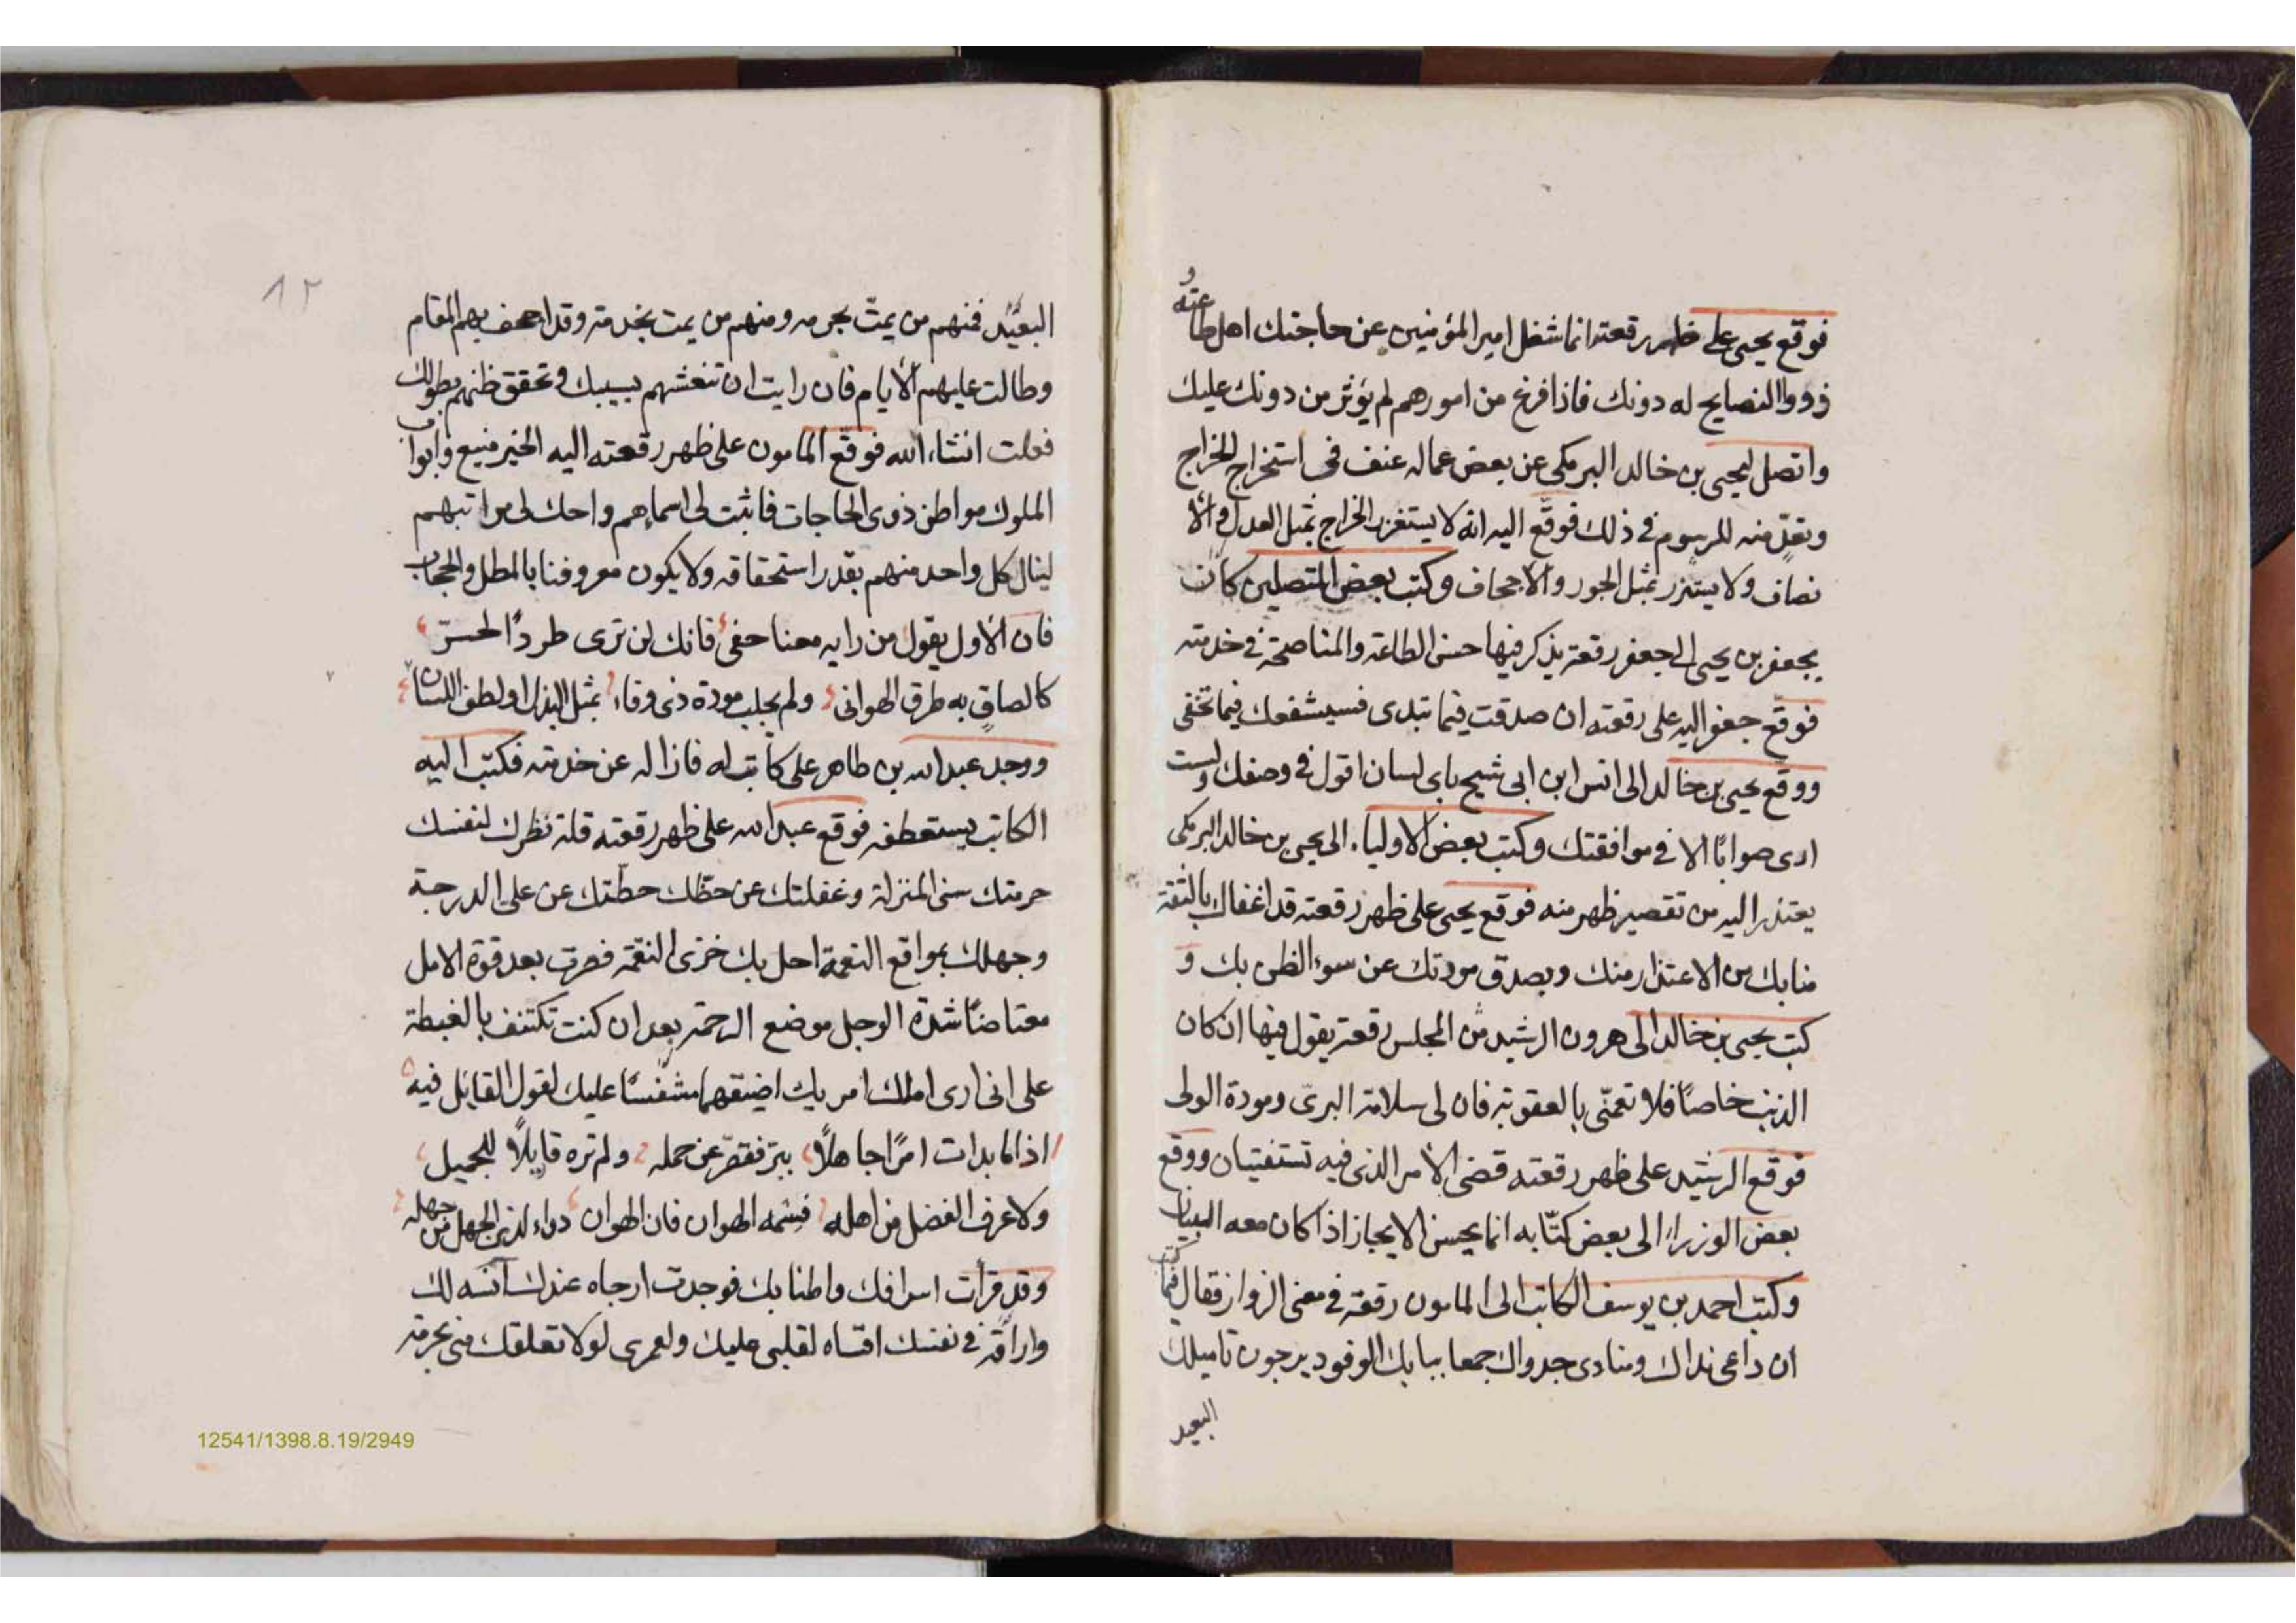 فوقع يحيى على ظهر رقعته انما شغل امير المؤمنين عن حاجتك اهل طاعته و
ذووا النصايح له دونك فاذا فرغ من امورهم لم يؤثر من دونك عليك
واتصل ليحيى بن خالد البرمكى عن بعض عماله عنف فى استخراج الخراج
وتعدّ منه للمرسوم فى ذلك فوقّع اليه انه لا يستغزر الخراج بمثل العدل والأ
نصاف ولا يستنزر بمثل الجور والاجحاف وكتب بعض المتصلين كان
بجعفر بن يحيى الى جعفر رقعة يذكر فيها حسن الطاعة والمناصحة فى خدمته
فوقع جعفر اليه على رقعته ان صدقت فيما تبدى فسيشفعك فيما تخفى
ووقع يحيى بن خالد الى انس ابن ابى شيح باى لسان اقول فى وصفك ولست
ارى صوابًا الا فى موافقتك وكتب بعض الاولياء الى يحيى بن خالد البرمكى
يعتذر اليه من تقصير ظهر منه فوقع يحيى على ظهر رقعته قد اغفال بالثقة
منابك من الاعتذار منك وبصدق مودتك عن سوء الظن بك و
كتب يحيى بن خالد الى هرون الرشيد من المجلس رقعة يقول فيها ان كان
الذنب خاصًا فلا تعمّى بالعقوبة فان لى سلامة البرى ومودة الولى
فوقع الرشيد على ظهر رقعته قضى الأمر الذى فيه تستفتيان ووقع
بعض الوزراء الى بعض كتّابه انما يحسن الايجاز اذا كان معه البيان
وكتب احمد بن يوسف الكاتب الى المامون رقعة فى معنى الزوار فقال فيما كتب
ان داعى نداك ومنادى جدواك جمعا ببابك الوفود يرجون تاميلك
البعيد
١٢
البعيد فمنهم من يمتّ بحرمه ومنهم من يمت بخدمة وقد اجحف بهم المقام
وطالت عليهم الأيام فان رايت ان تنعشهم بسيبك وتحقق ظنهم بطولك
فعلت انشاء الله فوقّع المامون على ظهر رقعته اليه الخير منيع وابواب
الملوك مواطن ذوى الحاجات فاثبت لى اسماءهم واحك لى مراتبهم
لينال كل واحد منهم بقدر استحقاقه ولا يكون معروفنا بالمطل والحجاب
فان الأول يقول من رايه معنا حفى فانك لن ترى طردًا لحسرّ
كالصاق به طرق الهوانى ولم يجلب مودة ذى وفاء بمثل البذل او لطف اللسان
ووجد عبد الله بن طاهر على كاتب له فازاله عن خدمته فكتب اليه
الكاتب يستعطفه فوقع عبد الله على ظهر رقعته قلة نظرك لنفسك
حرمتك سنى المنزلة وغفلتك عن حظك حطّتك عن على الدرجة
وجهلك بمواقع النعمة احل بك خزى النقمة فصرت بعد قوة الامل
معتاضًا شدة الوجل موضع الرحمة بعد ان كنت تكتنف بالغبطة
على انى ارى املك امر يك اضيقهما مشفسًا عليك لقول القايل فيه
اذا ما بدات امرًا جاهلًا ببرّ فقصّر عن حمله ولم تره قايلًا للجميل
ولا عرف الفضل من اهله فسمه الهوان فان الهوان دواء لذى الجهل من جهله
وقد قرات اسرافك واطنابك فوجدت ارجاه عندك آنسه لك
وارقّه فى نفسك اقساه لقلبى عليك ولعمرى لولا تعلقك منى بحرمة
12541/1398.8.19/2949